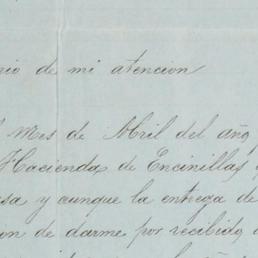 rio de mi atencion
Mes de Abril del año
Hacienda de Encinillas
sa y aunque la entrega de
on de darme por recibido